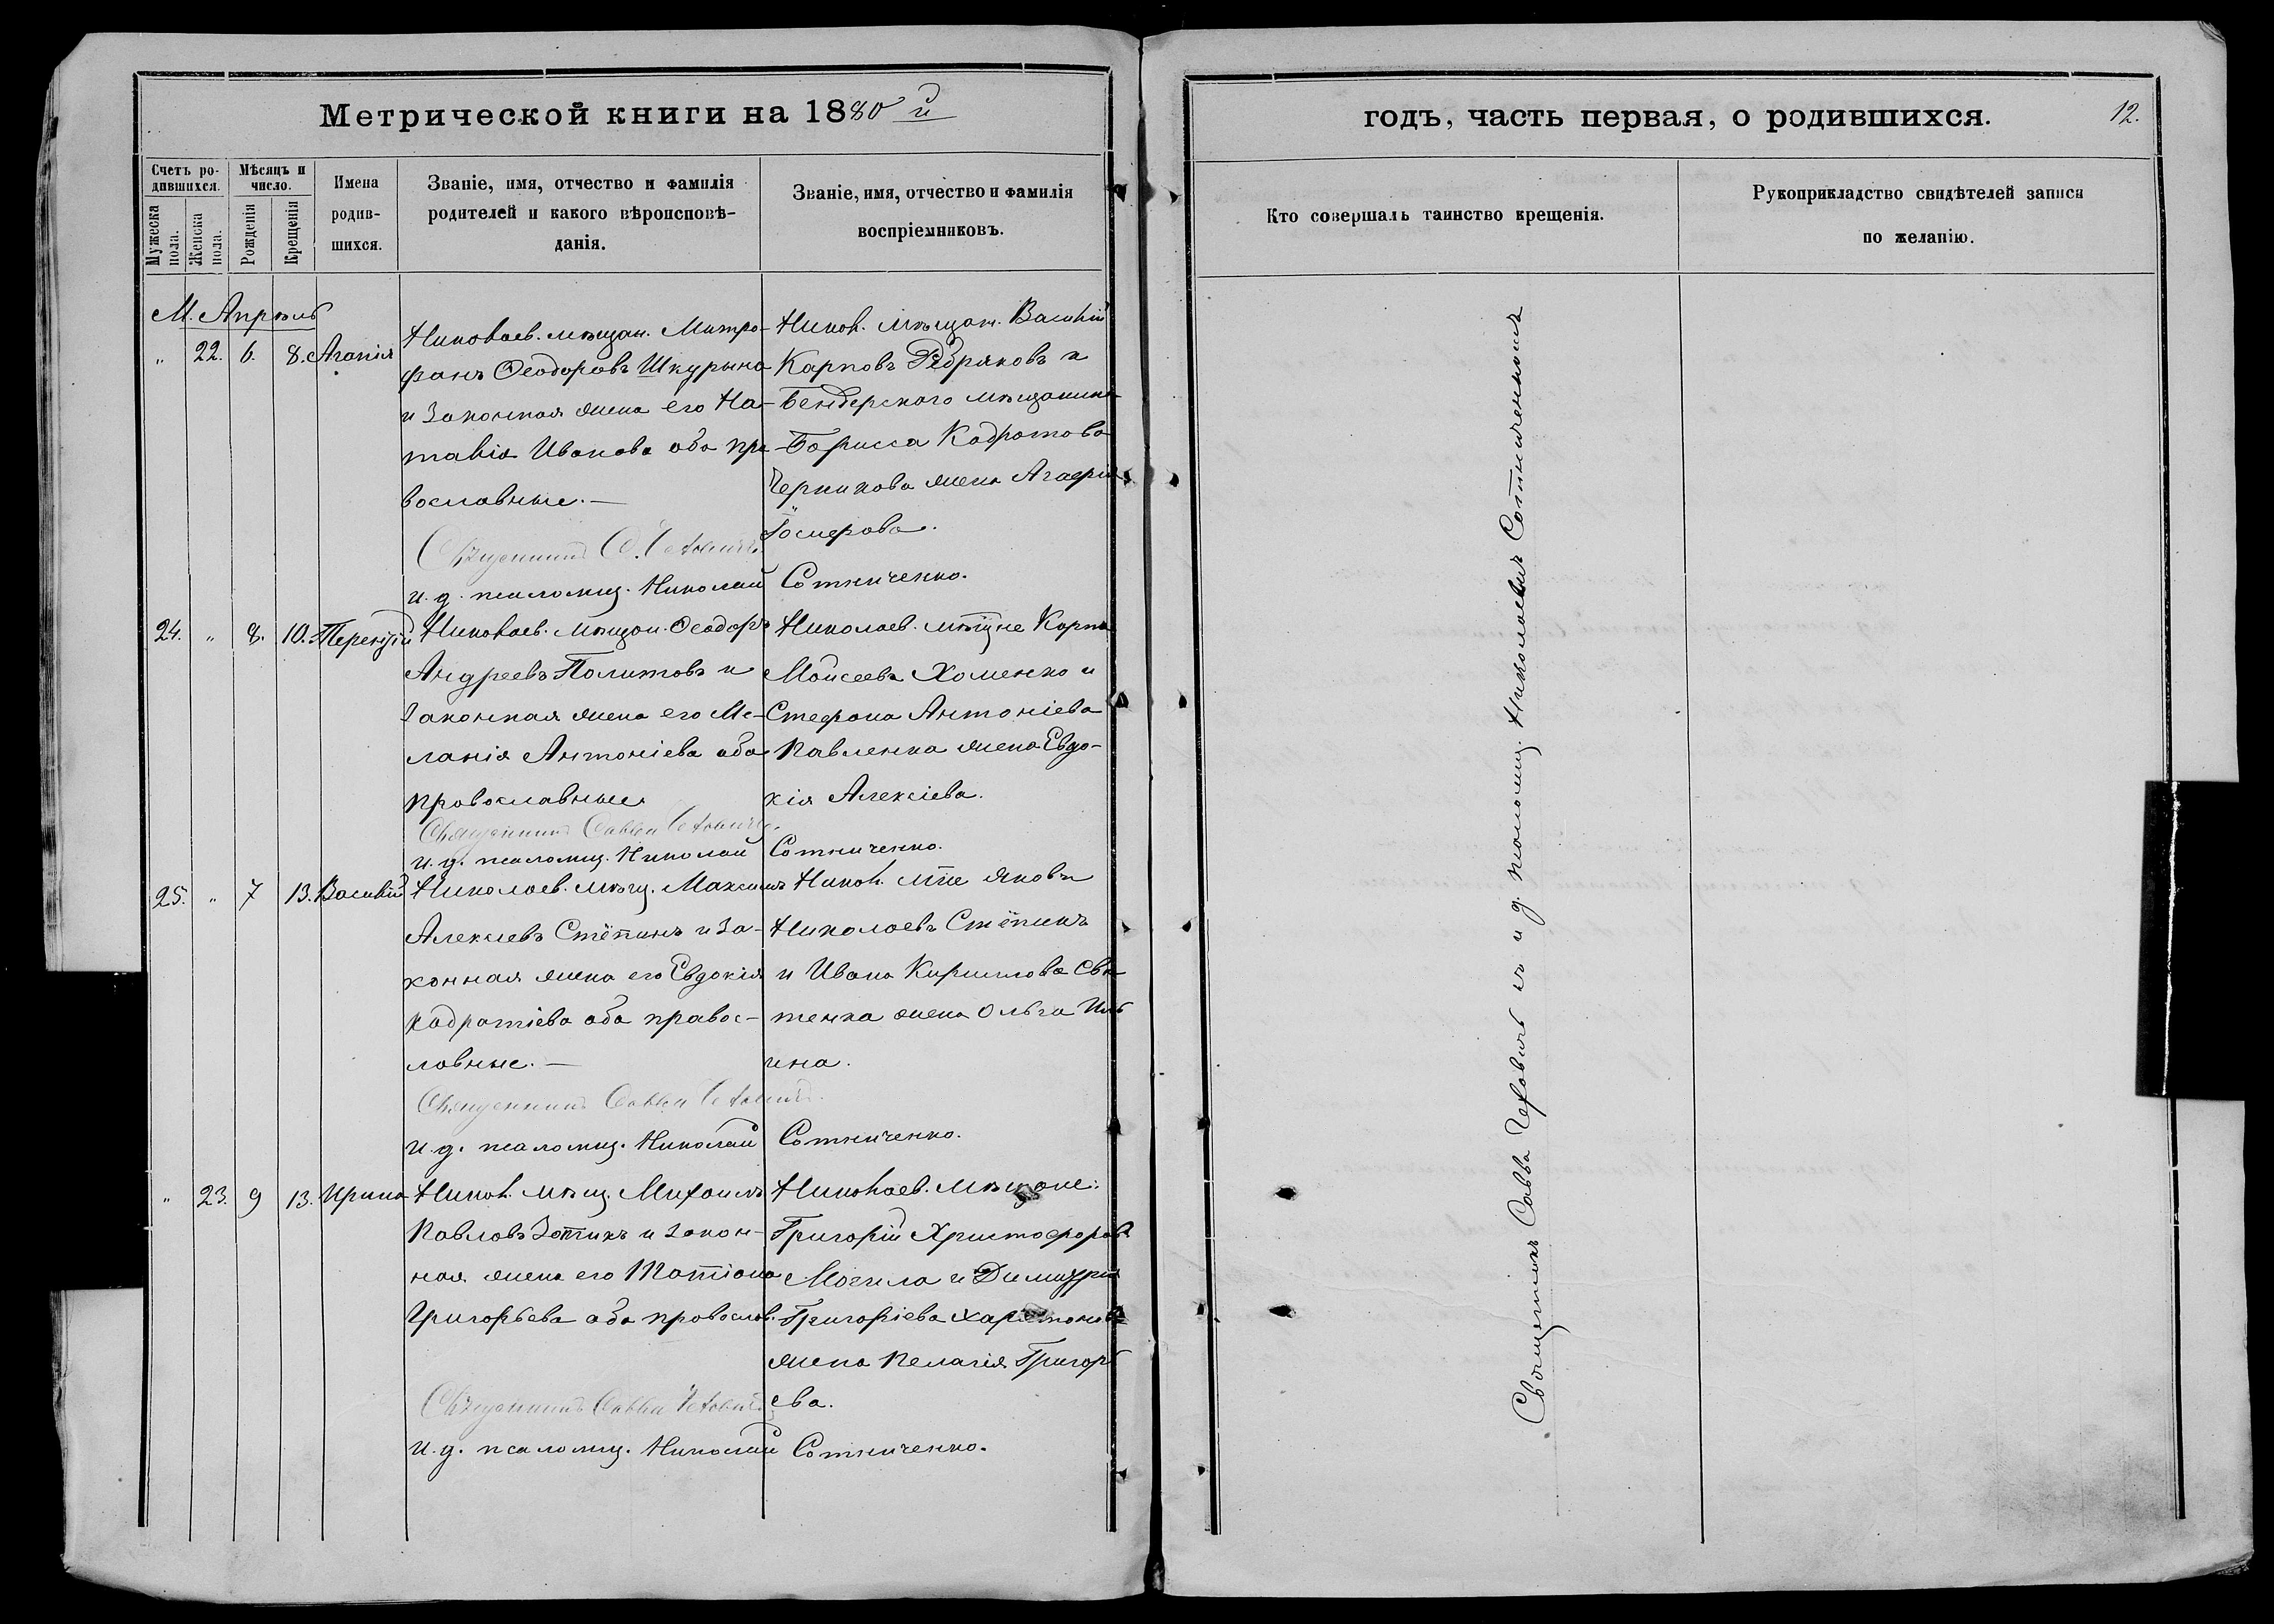 Метрической книги на 1880 й
годъ, часть первая, о родившихся.
12.
Счетъ родившихся.
Мужеска пола.
Женска пола.
Мѣсяцъ и число.
Рожденія
Крещенія
Имена родив-
шихся.
Званіе, имя, отчество и фамилія
родителей и какого вѣроисповѣ-
данія.
Званіе, имя, отчество и фамилія
воспріемниковъ.
Кто совершалъ таинство крещенія.
Рукоприкладство свидѣтелей записи
по желанію.
М. Апрѣль
" 22. 6. 8. Агапія
Николаев. мѣщан. Митро-
фанъ Ѳеодоровъ Шкурына
и законная жена его На-
талія Иванова оба пра-
вославные. —
Священникъ С. Чехович
и. д. псаломщ. Николай Сотниченко.
Никол. мѣщан. Василій
Карповъ Ребряковъ и
Бендерского мѣщанина
Борисса Кодратова
Черникова жена Агафія
24. " 8. 10. Терентій
Николаев. мѣщан. Ѳеодоръ
Андреевъ Политовъ и
законная жена его Ме-
ланія Антоніева оба
православные
Священникъ Савва Чехович
и. д. псаломщ. Николай Сотниченко.
Николаев. мѣщне Карпъ
Моисеевъ Хоменко и
Стефана Антоніева
Павленка жена Евдо-
кія Алексіева.
25. " 7 13. Василій
Николаев. мѣщ. Максимъ
Алексіевъ Стёпинъ и за-
конная жена его Евдокія
Кодратіева оба правос-
лавные. —
Священникъ Савва Чехович
и. д. псаломщ. Николай Сотниченко.
Никол. мѣне Яковъ
Николаевъ Стёпинъ
и Ивана Кириллова Сви-
тенка жена Ольга Иль
ина.
" 23. 9 13. Ирина
Никол. мѣщ. Михаилъ
Павловъ Зотикъ и закон-
ная жена его Татіана
Григорьева оба православ.
Священникъ Савва Чехович
и. д. псаломщ. Николай Сотниченко.
Николаев. мѣщане:
Григорій Христофоровъ
Могила и Димитрія
Григоріева Харитонова
жена Пелагія Григорь
ева.
Священникъ Савва Чеховичъ съ и. д. псаломщ. Николаевымъ Сотниченкомъ